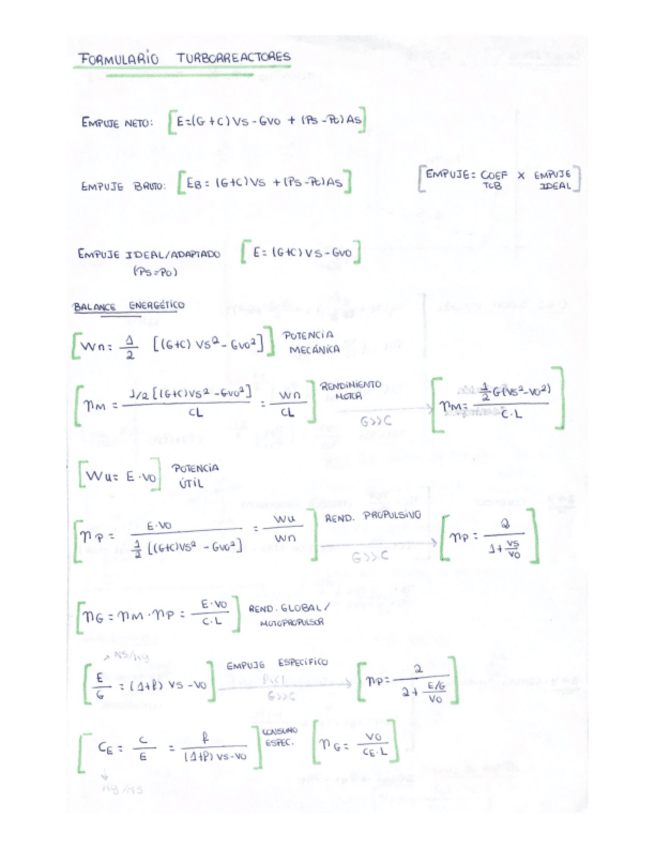 FORMULARIO TURBORREACTORES
EMPUJE NETO: [E=(G+C)Vs-GVo + (Ps-Po)As]
EMPUJE BRUTO: [EB = (G+C)Vs + (Ps-Po)As] [EMPUJE = COEF TOB x EMPUJE IDEAL]
EMPUJE IDEAL/ADAPTADO [E = (G+C)Vs - GVo]
(Ps=Po)
BALANCE ENERGÉTICO
[Wn = 1/2 [(G+C)Vs² - GVo²]] POTENCIA MECÁNICA
[ηM = 1/2 [(G+C)Vs² - GVo²] / CL = Wn / CL] RENDIMIENTO MOTOR G>>C → [ηM = 1/2 G(Vs²-Vo²) / C·L]
[Wu = E·Vo] POTENCIA ÚTIL
[ηP = E·Vo / 1/2 [(G+C)Vs² - GVo²] = Wu / Wn] REND. PROPULSIVO G>>C → [ηP = 2 / 1+ Vs/Vo]
[ηG = ηM · ηP = E·Vo / C·L] REND. GLOBAL / MOTOPROPULSOR
NS/kg
[E/G = (1+f) Vs - Vo] EMPUJE ESPECÍFICO f<<1 G>>C → [ηP = 2 / 2+ E/G / Vo]
[CE = C/E = f / (1+f) Vs-Vo] CONSUMO ESPEC. [ηG = Vo / CE·L]
kg/NS